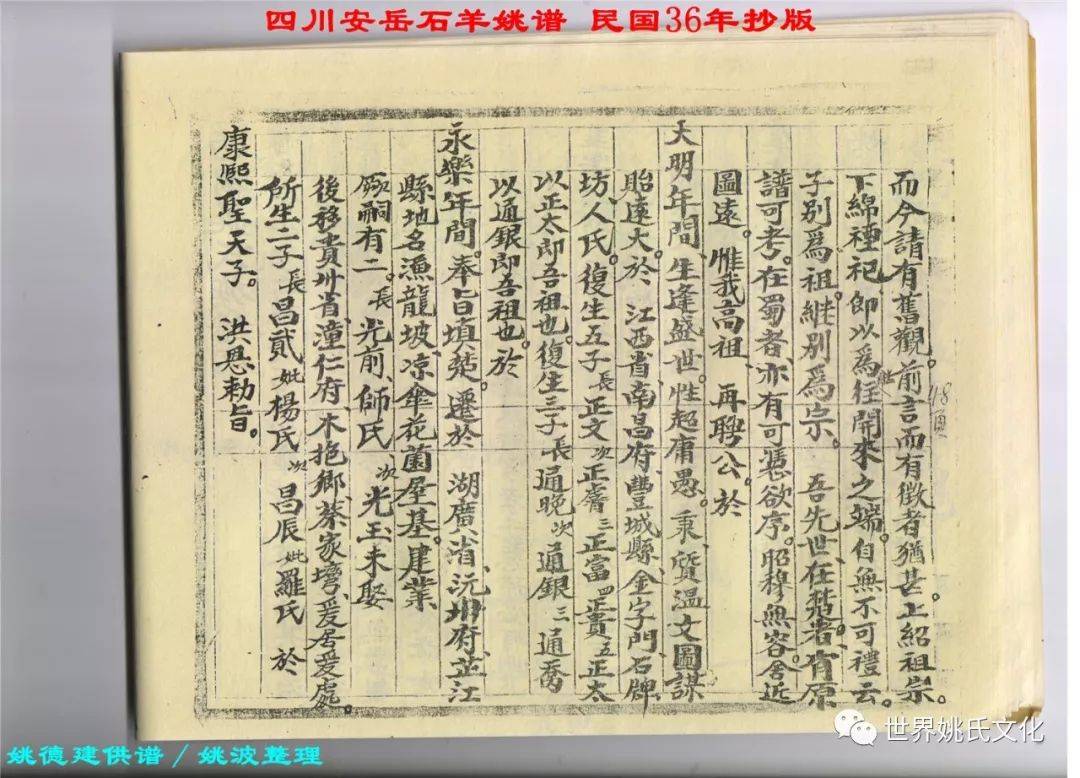 四川安岳石羊姚谱 民国36年抄版
而今請有舊觀。前言而有徵者猶甚。上紹祖宗。
下綿禋祀。即以為往開來之端。自無不可禮云。
継
48頁
子別為祖。継別為宗。 吾先世在楚者、有原
譜可考。在蜀者、亦有可憑欲序。昭穆無容舍近
圖遠。惟我高祖 再聘公。於
大明年間、生逢盛世。性超庸愚。秉質溫文。圖謀
貽遠大。於、江西省南昌府、豐城縣、金字門、石牌
坊、人氏。復生五子、長正文 次正膺 三正富 四正貴 五正太
以正太即吾祖也。復生三子、長通晚 次通銀 三通喬
以通銀即吾祖也。於
永樂年間。奉旨填楚。遷於 湖廣省、沅州府、芷江
縣、地名漁龍坡、凉傘花菌屋基、建業
啄嗣有二。長光前、師氏、次光玉未娶
後移貴州省潼仁府、木抱鄉、蔡家灣、爰居爰處。
所生二子 長昌貳 妣楊氏 次昌辰 妣羅氏 於
康熙聖天子。 洪恩勅旨。
世界姚氏文化
姚德建供谱／姚波整理